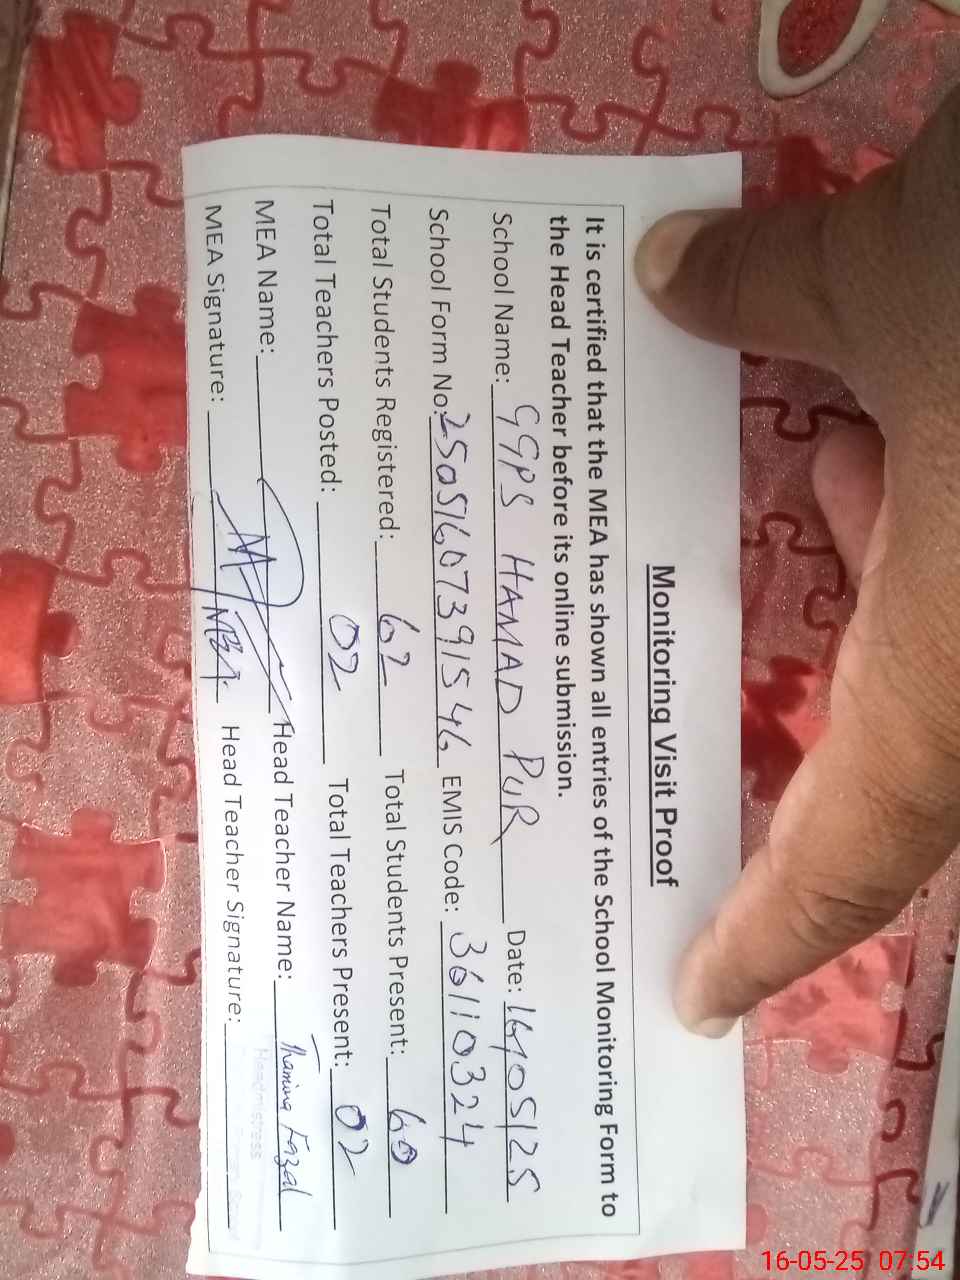 Monitoring Visit Proof
It is certified that the MEA has shown all entries of the School Monitoring Form to
the Head Teacher before its online submission.
School Name: GGPS HAMAD PUR Date: 16/05/25
School Form No: 25051607391546 EMIS Code: 36110324
Total Students Registered: 62 Total Students Present: 60
Total Teachers Posted: 02 Total Teachers Present: 02
MEA Name: Head Teacher Name: Fazal
MEA Signature: Head Teacher Signature:
Headmistress
16-05-25 07:54